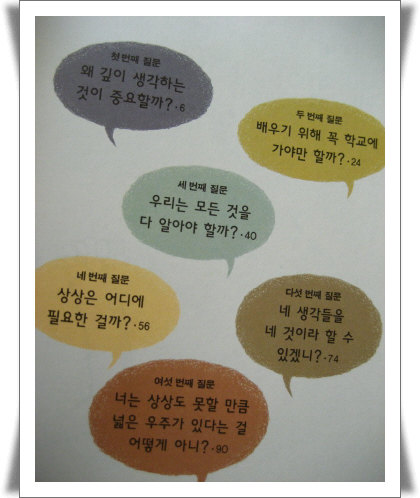 첫 번째 질문
왜 깊이 생각하는
것이 중요할까?·6
두 번째 질문
배우기 위해 꼭 학교에
가야만 할까?·24
세 번째 질문
우리는 모든 것을
다 알아야 할까?·40
네 번째 질문
상상은 어디에
필요한 걸까?·56
다섯 번째 질문
네 생각들을
네 것이라 할 수
있겠니?·74
여섯 번째 질문
너는 상상도 못할 만큼
넓은 우주가 있다는 걸
어떻게 아니?·90